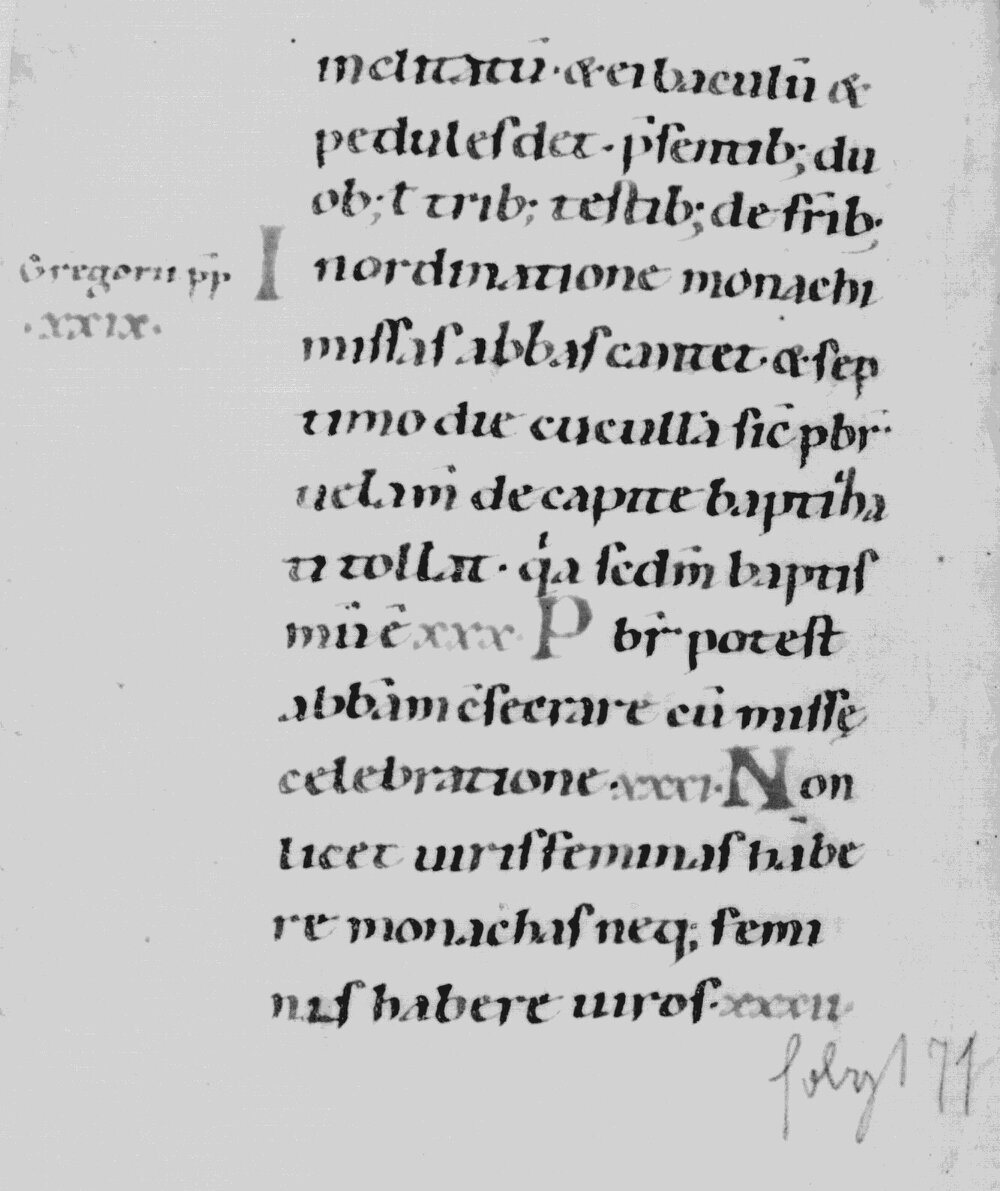 inclitatū · & ei baculū &
pedules det · p̄sentib; du
ob; ł trib; testib; de fr̄ib;
Gregorii pp̄ I n ordinatione monachi
· xxix · missas abbas cantet · & sep
timo die cucullā sic̄ pbr̄ ·
uelam̄ de capite baptiʼha
ti tollat · qͥa sedm̄ baptis
mū ē xxx · P br̄ potest
abbām c̄secrare cū missę
celebratione · xxxi · N on
licet uiris feminas habe
re monachas neq; femi
nis habere uiros · xxxii ·
folgt 71